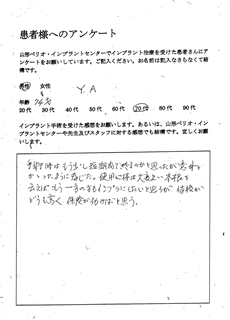 患者様へのアンケート
山形ペリオ・インプラントセンターでインプラント治療を受けた患者さんにア
ンケートをお願いしています。ご記入ください。お名前は記入なさらなくて結
構です。
男性 女性 Y A
年齢
20代 30代 40代 50代 60代 70代 80代 90代
インプラント手術を受けた感想をお願いします。あるいは、山形ペリオ・イン
プラントセンターや先生及びスタッフに対する感想でも結構です。宜しくお願
いします。
手術時はもう少し短期間で終るのかと思ったが意外と
かかったように感じた。使用以降は大変良い 本根を
云えばもう一本のもインプラにしたいと思うが 値段が
どうも高く 保険が効けばと思う。